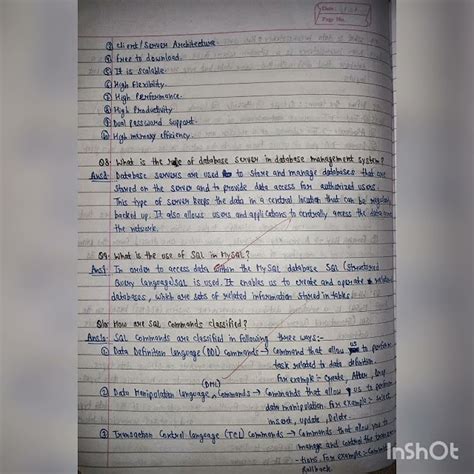 Date:
Page No.
③ Client/Server Architecture.
④ Free to download.
⑤ It is scalable.
⑥ High Flexibility.
⑦ High Performance.
⑧ High Productivity
⑨ Dual Password Support.
⑩ High memory efficiency.
Q8. What is the role of database server in database management system?
Ans8. Database servers are used to store and manage databases that are
stored on the server and to provide data access for authorized users.
This type of server keeps the data in a central location that can be regularly
backed up. It also allows users and applications to centrally access the data
the network.
Q9. What is the use of SQL in MySQL?
Ans9. In order to access data within the MySQL database SQL (Structured
Query language) SQL is used. It enables us to create and operate
databases, which are sets of related information stored in tables
Q10. How are SQL commands classified?
Ans10. SQL Commands are classified in following three ways:-
① Data Definition language (DDL) Commands → Command that allow us to perform
task related to data definition.
For example:- Create, Alter, Drop
(DML)
② Data Manipulation language, Commands → Commands that allow us to perform
data manipulation. For example:- Select,
insert, update, Delete.
③ Transaction Control language (TCL) Commands → Commands that allow you to
manage and control the
For example:- Commit
Rollback
InShOt